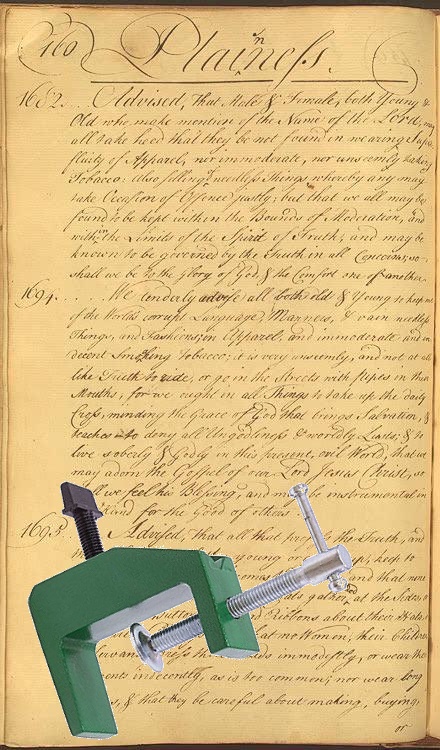 160
Plainness.
1682. . . Advised, that Male & Female, both Young &
Old who make mention of the Name of the Lord, may
all take heed that they be not found in wearing Supe
fluity of Apparel, nor immoderate, nor unseemly taking
Tobacco: also selling needless Things whereby any may
take Occasion of Offence justly; but that we all may be
found to be kept within the Bounds of Moderation, and
within the Limits of the Spirit of Truth; and may be
known to be governed by the Truth in all Concerns, so
shall we be to the Glory of God, & the Comfort one of another.
1694. . . . . We tenderly advise all both old & Young to keep
of the World's corrupt Language, Manners, & vain needless
Things, and Fashions, in Apparel, and immoderate and in
decent Smoking Tobacco; it is very unseemly, and not at all
like Truth to ride, or go in the Streets with pipes in their
Mouths, for we ought in all Things to take up the daily
Cross, minding the Grace of God that brings Salvation, &
teaches to deny all Ungodliness & worldly Lusts, & to
live soberly & Godly in this present, evil World, that we
may adorn the Gospel of our Lord Jesus Christ, so
we feel his Blessing, and may be instrumental in
Hand for the Good of others
1695. Advised, that all that profess the Truth, and
young or keep to
and that none
gather, at the Sides,
Ribbons about their Heads
that no Women, their Children
dress their immodestly, or wear their
indecently, as is too common; nor wear long
& that they be careful about making, buying,
or